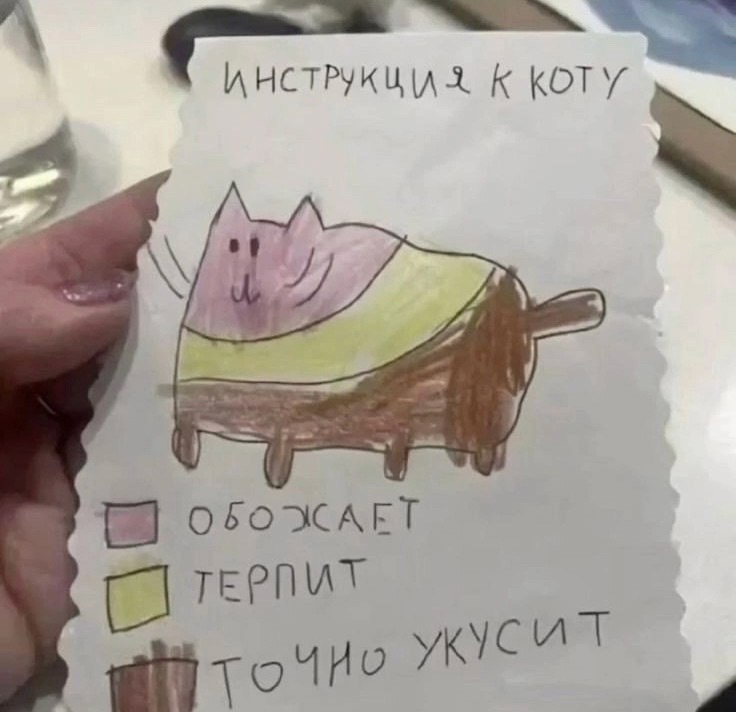 ИНСТРУКЦИЯ К КОТУ
ОБОЖАЕТ
ТЕРПИТ
ТОЧНО УКУСИТ